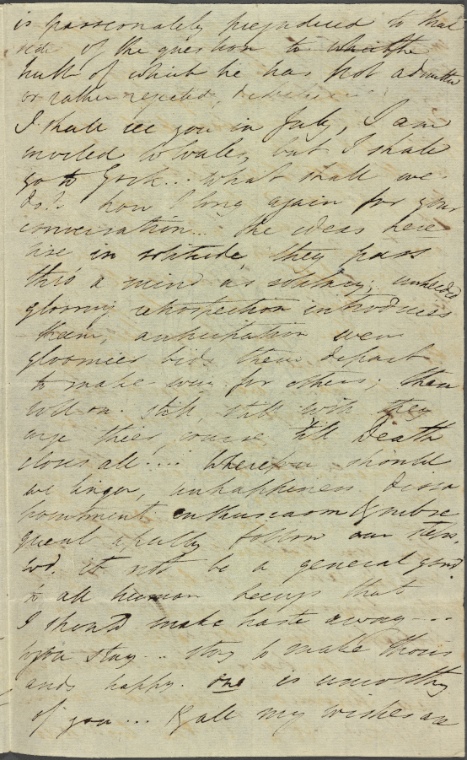 is passionately prejudiced to that
side of the question to which the
half of which he has not admitted
or rather rejected,
I shall see you in July, I am
invited to Wales, but I shall
go to York... what shall we
do? How I long again for your
conversation... The ideas here
rise in solitude they pass
thro a mind as solitary; unheeded
glooming retrospection introduces
them, anticipation even
gloomier bids them depart
to make way for others; these
roll on still, still will they
urge their course till Death
closes all.... Wherefore should
we linger, unhappiness disap
pointment enthusiasm & subse
quent apathy follow our steps.
wd it not be a general good
to all human beings that
I should make haste away---
you stay... stay to make thous
ands happy. one is unworthy
of you... & all my wishes are